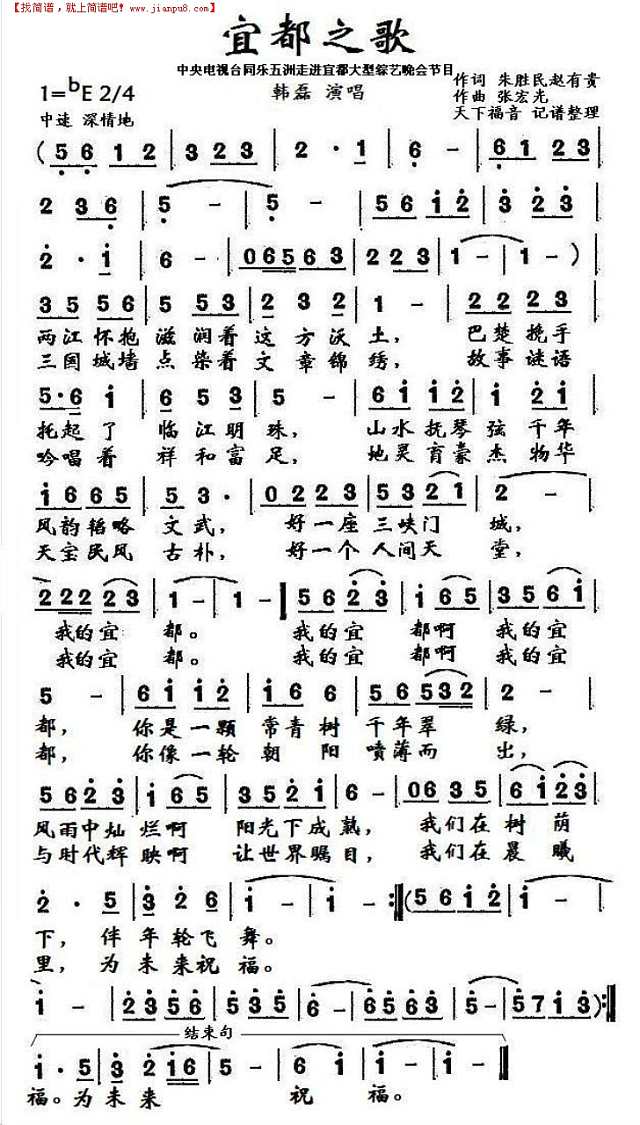 【找简谱，就上简谱吧！www.jianpu8.com】
宜都之歌
中央电视台同乐五洲走进宜都大型综艺晚会节目
1=bE 2/4
韩磊 演唱
作词 朱胜民赵有贵
作曲 张宏光
中速 深情地
天下福音 记谱整理
(5 6 1 2 | 3 2 3 | 2 · 1 | 6 - | 6 1 2 3 |
2 3 6 | 5 - | 5 - | 5 6 1 2 | 3 2 3 |
2 · 1 | 6 - | 0 6 5 6 3 | 2 2 3 | 1 - | 1 - )
3 5 5 6 | 5 5 3 | 2 3 2 | 1 - | 2 2 2 3 |
两江怀抱 滋润着 这方沃土， 巴楚挽手
三国城墙 点染着 文章锦绣， 故事谜语
5·6 1 | 6 5 3 | 5 - | 6 1 1 2 | 3 1 2 |
托起了 临江明珠， 山水抚琴弦千年
吟唱着 祥和富足， 地灵育豪杰物华
1 6 6 5 | 5 3 · | 0 2 2 3 | 5 3 2 1 | 2 - |
风韵韬略 文武， 好一座 三峡门 城，
天宝民风 古朴， 好一个 人间天 堂，
2 2 2 2 3 | 1 - | 1 - | 5 6 2 3 | 1 6 5 | 3 5 6 1 |
我的宜 都。 我的宜 都啊 我的宜
我的宜 都。 我的宜 都啊 我的宜
5 - | 6 1 1 2 | 1 6 6 | 5 6 5 3 2 | 2 - |
都， 你是一颗 常青树 千年翠 绿，
都， 你像一轮 朝 阳 喷薄而 出，
5 6 2 3 | 1 6 5 | 3 5 2 1 | 6 - | 0 6 3 5 | 6 1 2 3 |
风雨中灿 烂啊 阳光下成熟， 我们在 树荫
与时代辉 映啊 让世界瞩目， 我们在 晨曦
2 · 5 | 3 2 6 | 1 - | 1 - :‖ (5 6 1 2 | 1 - |
下， 伴 年轮飞 舞。
里， 为 未来祝 福。
1 - | 2 3 5 6 | 5 3 5 | 6 - | 6 5 6 3 | 5 - | 5 7 1 3 ) :‖
结束句
1 · 5 | 3 2 1 6 | 5 - | 6 1 | 1 - | 1 - ‖
福。为 未 来 祝 福。